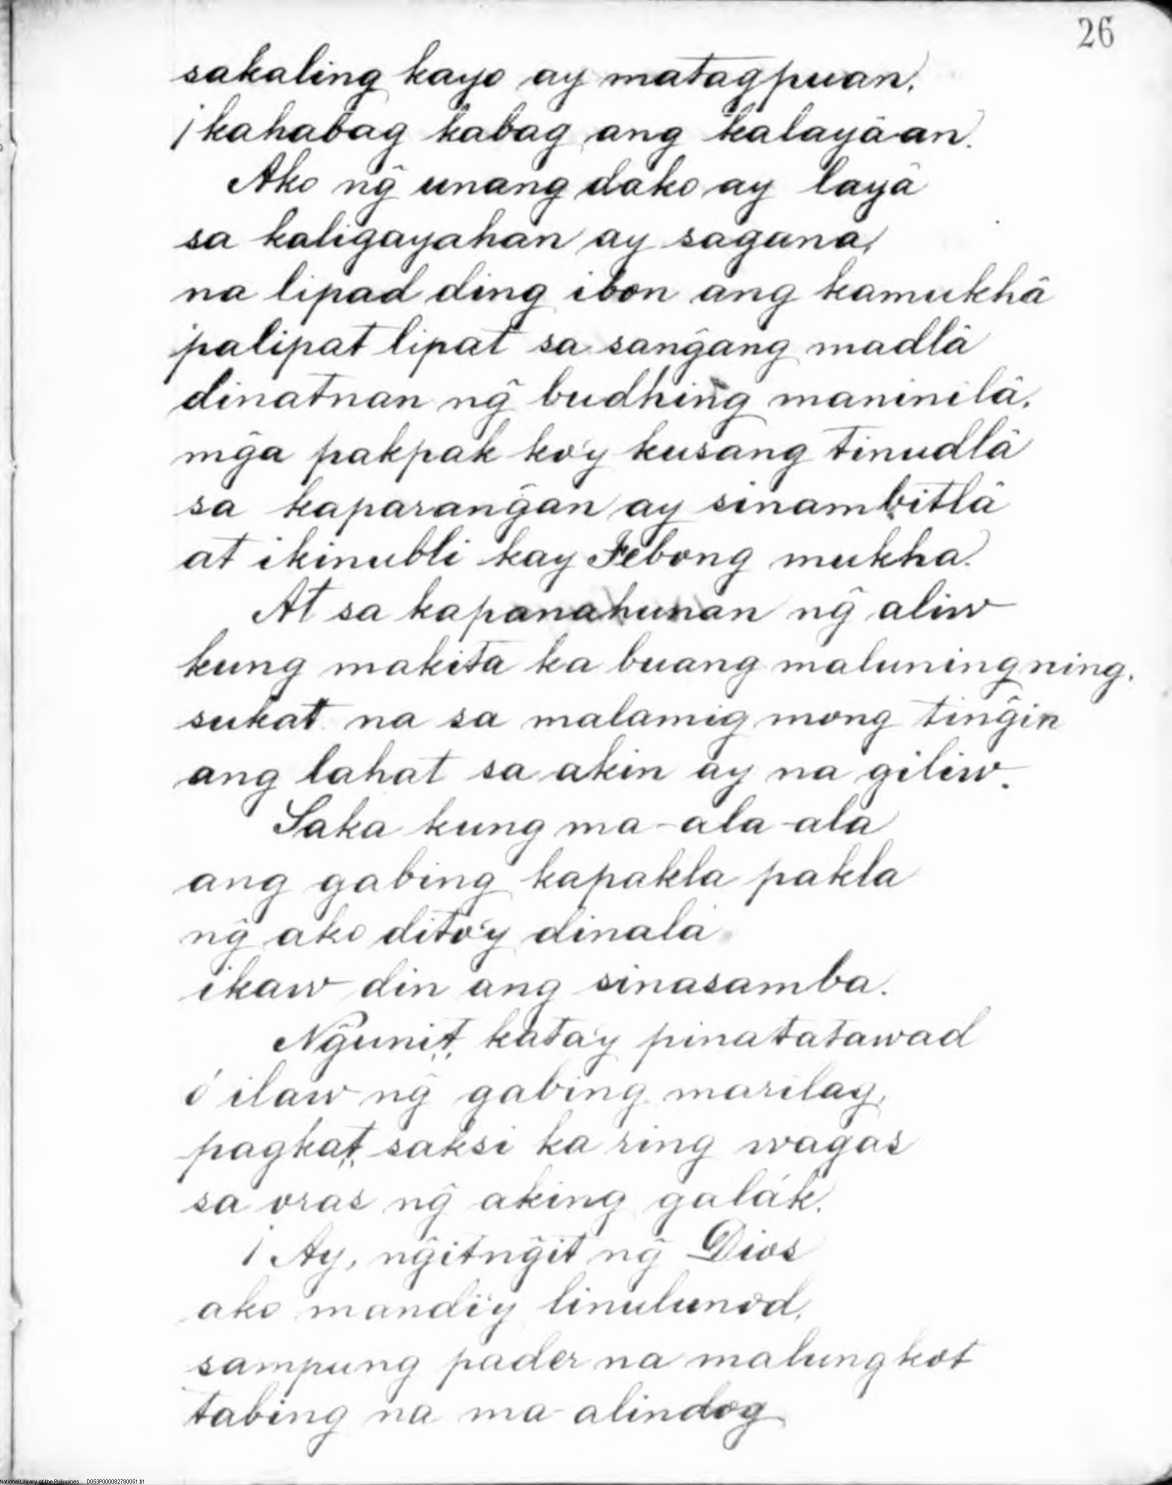 26
sakaling kayo ay matagpuan,
¡kahabag kabag ang kalayàan.
Ako ng̃ unang dako ay layâ
sa kaligayahan ay sagana,
na lipad ding ibon ang kamukhâ
palipat lipat sa sang̃ang madlâ
dinatnan ng̃ budhing maninilâ,
mg̃a pakpak ko'y kusang tinudlâ
sa kaparang̃an ay sinambitlâ
at ikinubli kay Febong mukha.
At sa kapanahunan ng̃ aliw
kung makita ka buang maluningning,
sukat na sa malamig mong ting̃in
ang lahat sa akin ay na giliw.
Saka kung ma-ala-ala
ang gabing kapakla pakla
ng̃ ako dito'y dinala
ikaw din ang sinasamba.
Ng̃unit, kata'y pinatatawad
ó ilaw ng̃ gabing marilag,
pagkat, saksi ka ring wagas
sa oras ng̃ aking galák.
¡Ay, ng̃itng̃it ng̃ Dios
ako mandi'y linulunod,
sampung pader na malungkot
tabing na ma-alindog